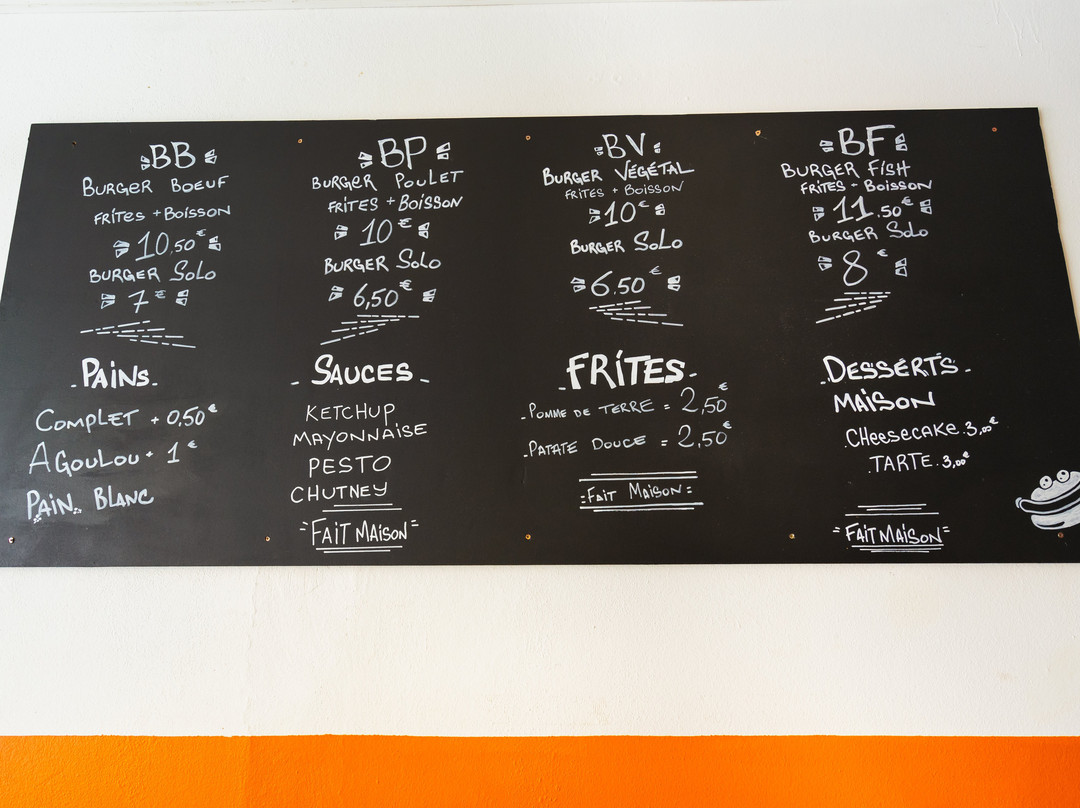 BB
BURGER BOEUF
FRITES + BOISSON
10,50€
BURGER SOLO
7€
BP
BURGER POULET
FRITES + BOISSON
10€
BURGER SOLO
6,50€
BV
BURGER VÉGÉTAL
FRITES + BOISSON
10€
BURGER SOLO
6.50€
BF
BURGER FISH
FRITES - BOISSON
11.50€
BURGER SOLO
8€
- PAINS -
COMPLET + 0,50€
AGOULOU + 1€
PAIN BLANC
- SAUCES -
KETCHUP
MAYONNAISE
PESTO
CHUTNEY
"FAIT MAISON"
- FRITES -
- POMME DE TERRE = 2,50€
- PATATE DOUCE = 2,50€
= FAIT MAISON =
. DESSERTS -
MAISON
. CHEESECAKE . 3,00€
. TARTE . 3,00€
"FAIT MAISON"